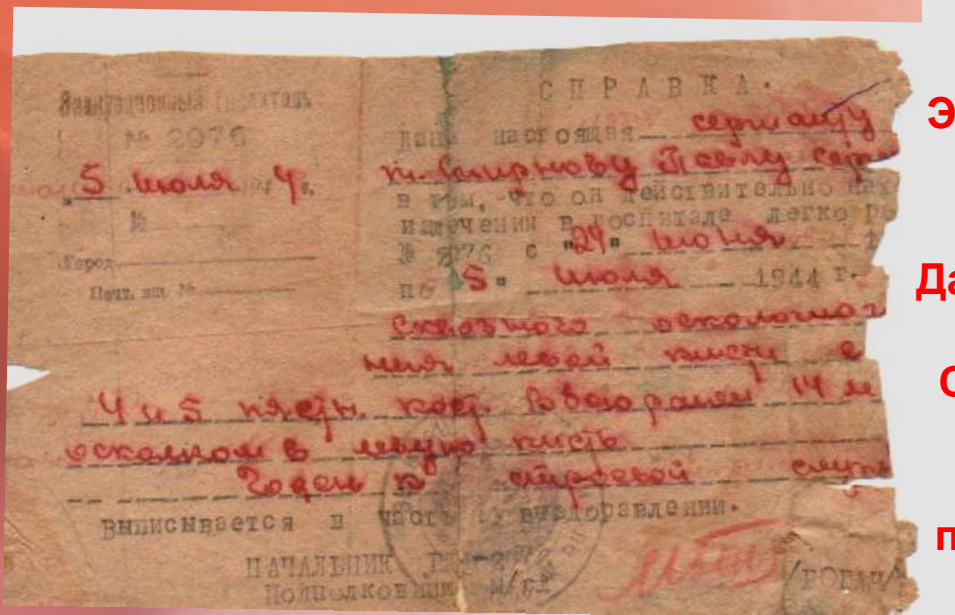 Эвакуационный госпиталь
№ 2976
5 июля 194 4 г.
№
Город
Почт. ящ. №
СПРАВКА.
дана настоящая сержанту
т. Смирнову Павлу Сер
в том, что он действительно нах
излечении в госпитале легко р
№ 2976 с "29" июня 1
по 5" июля 1944 г.
сквозного осколочног
ния левой кисти с
4 и 5 пястн. кост. В бою ранен 14 м
осколком в левую кисть
Годен к строевой служ
выписывается в часть по выздоравлении.
НАЧАЛЬНИК
Подполковник м/сл
/РОГАЧ/
Э
Да
С
п